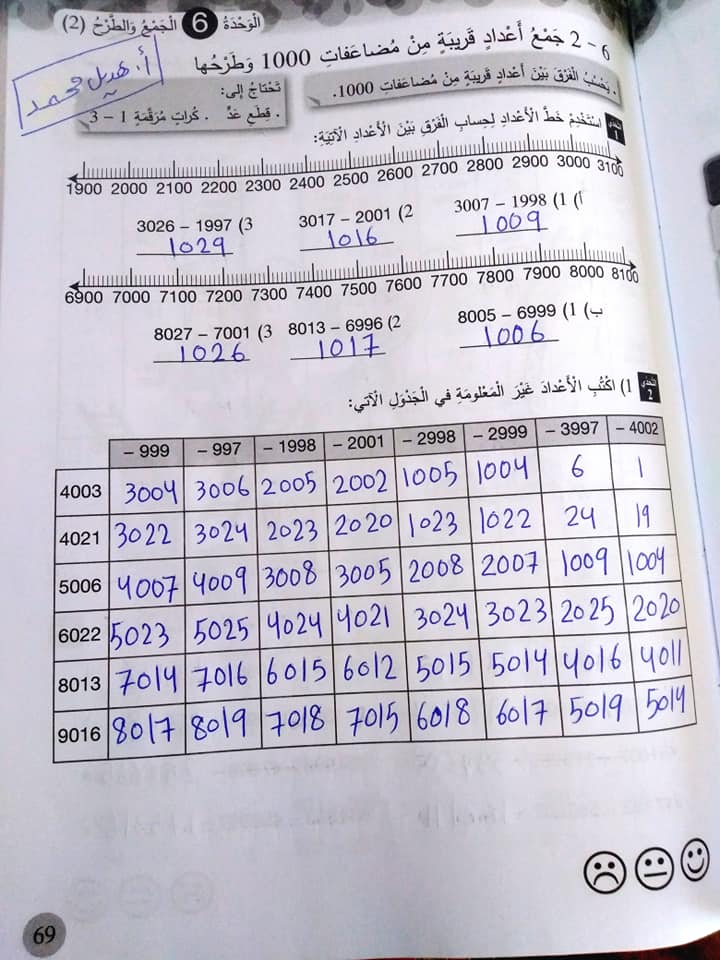 الْوَحْدَةُ 6 الْجَمْعُ وَالطَّرْحُ (2)
أ. هديل محمد
6 - 2 جَمْعُ أَعْدادٍ قَريبَةٍ مِنْ مُضاعَفاتِ 1000 وَطَرْحُها
. يَحْسُبُ الْفَرْقَ بَيْنَ أَعْدادٍ قَريبَةٍ مِنْ مُضاعَفاتِ 1000.
تَحْتاجُ إلى:
. قِطَعِ عَدٍّ . كُراتٍ مُرَقَّمَةٍ 1 – 3
التحدي 1 اسْتَخْدِمْ خَطَّ الْأَعْدادِ لِحِسابِ الْفَرْقِ بَيْنَ الْأَعْدادِ الْآتِيَةِ:
1900 2000 2100 2200 2300 2400 2500 2600 2700 2800 2900 3000 3100
أ) 1) 3007 – 1998 2) 3017 – 2001 3) 3026 – 1997
1009 1016 1029
6900 7000 7100 7200 7300 7400 7500 7600 7700 7800 7900 8000 8100
ب) 1) 8005 – 6999 2) 8013 – 6996 3) 8027 – 7001
1006 1017 1026
التحدي 2 1) اكْتُبِ الْأَعْدادَ غَيْرَ الْمَعْلومَةِ في الْجَدْوَلِ الْآتي:
– 999 – 997 – 1998 – 2001 – 2998 – 2999 – 3997 – 4002
4003 3004 3006 2005 2002 1005 1004 6 1
4021 3022 3024 2023 2020 1023 1022 24 19
5006 4007 4009 3008 3005 2008 2007 1009 1004
6022 5023 5025 4024 4021 3024 3023 2025 2020
8013 7014 7016 6015 6012 5015 5014 4016 4011
9016 8017 8019 7018 7015 6018 6017 5019 5014
69